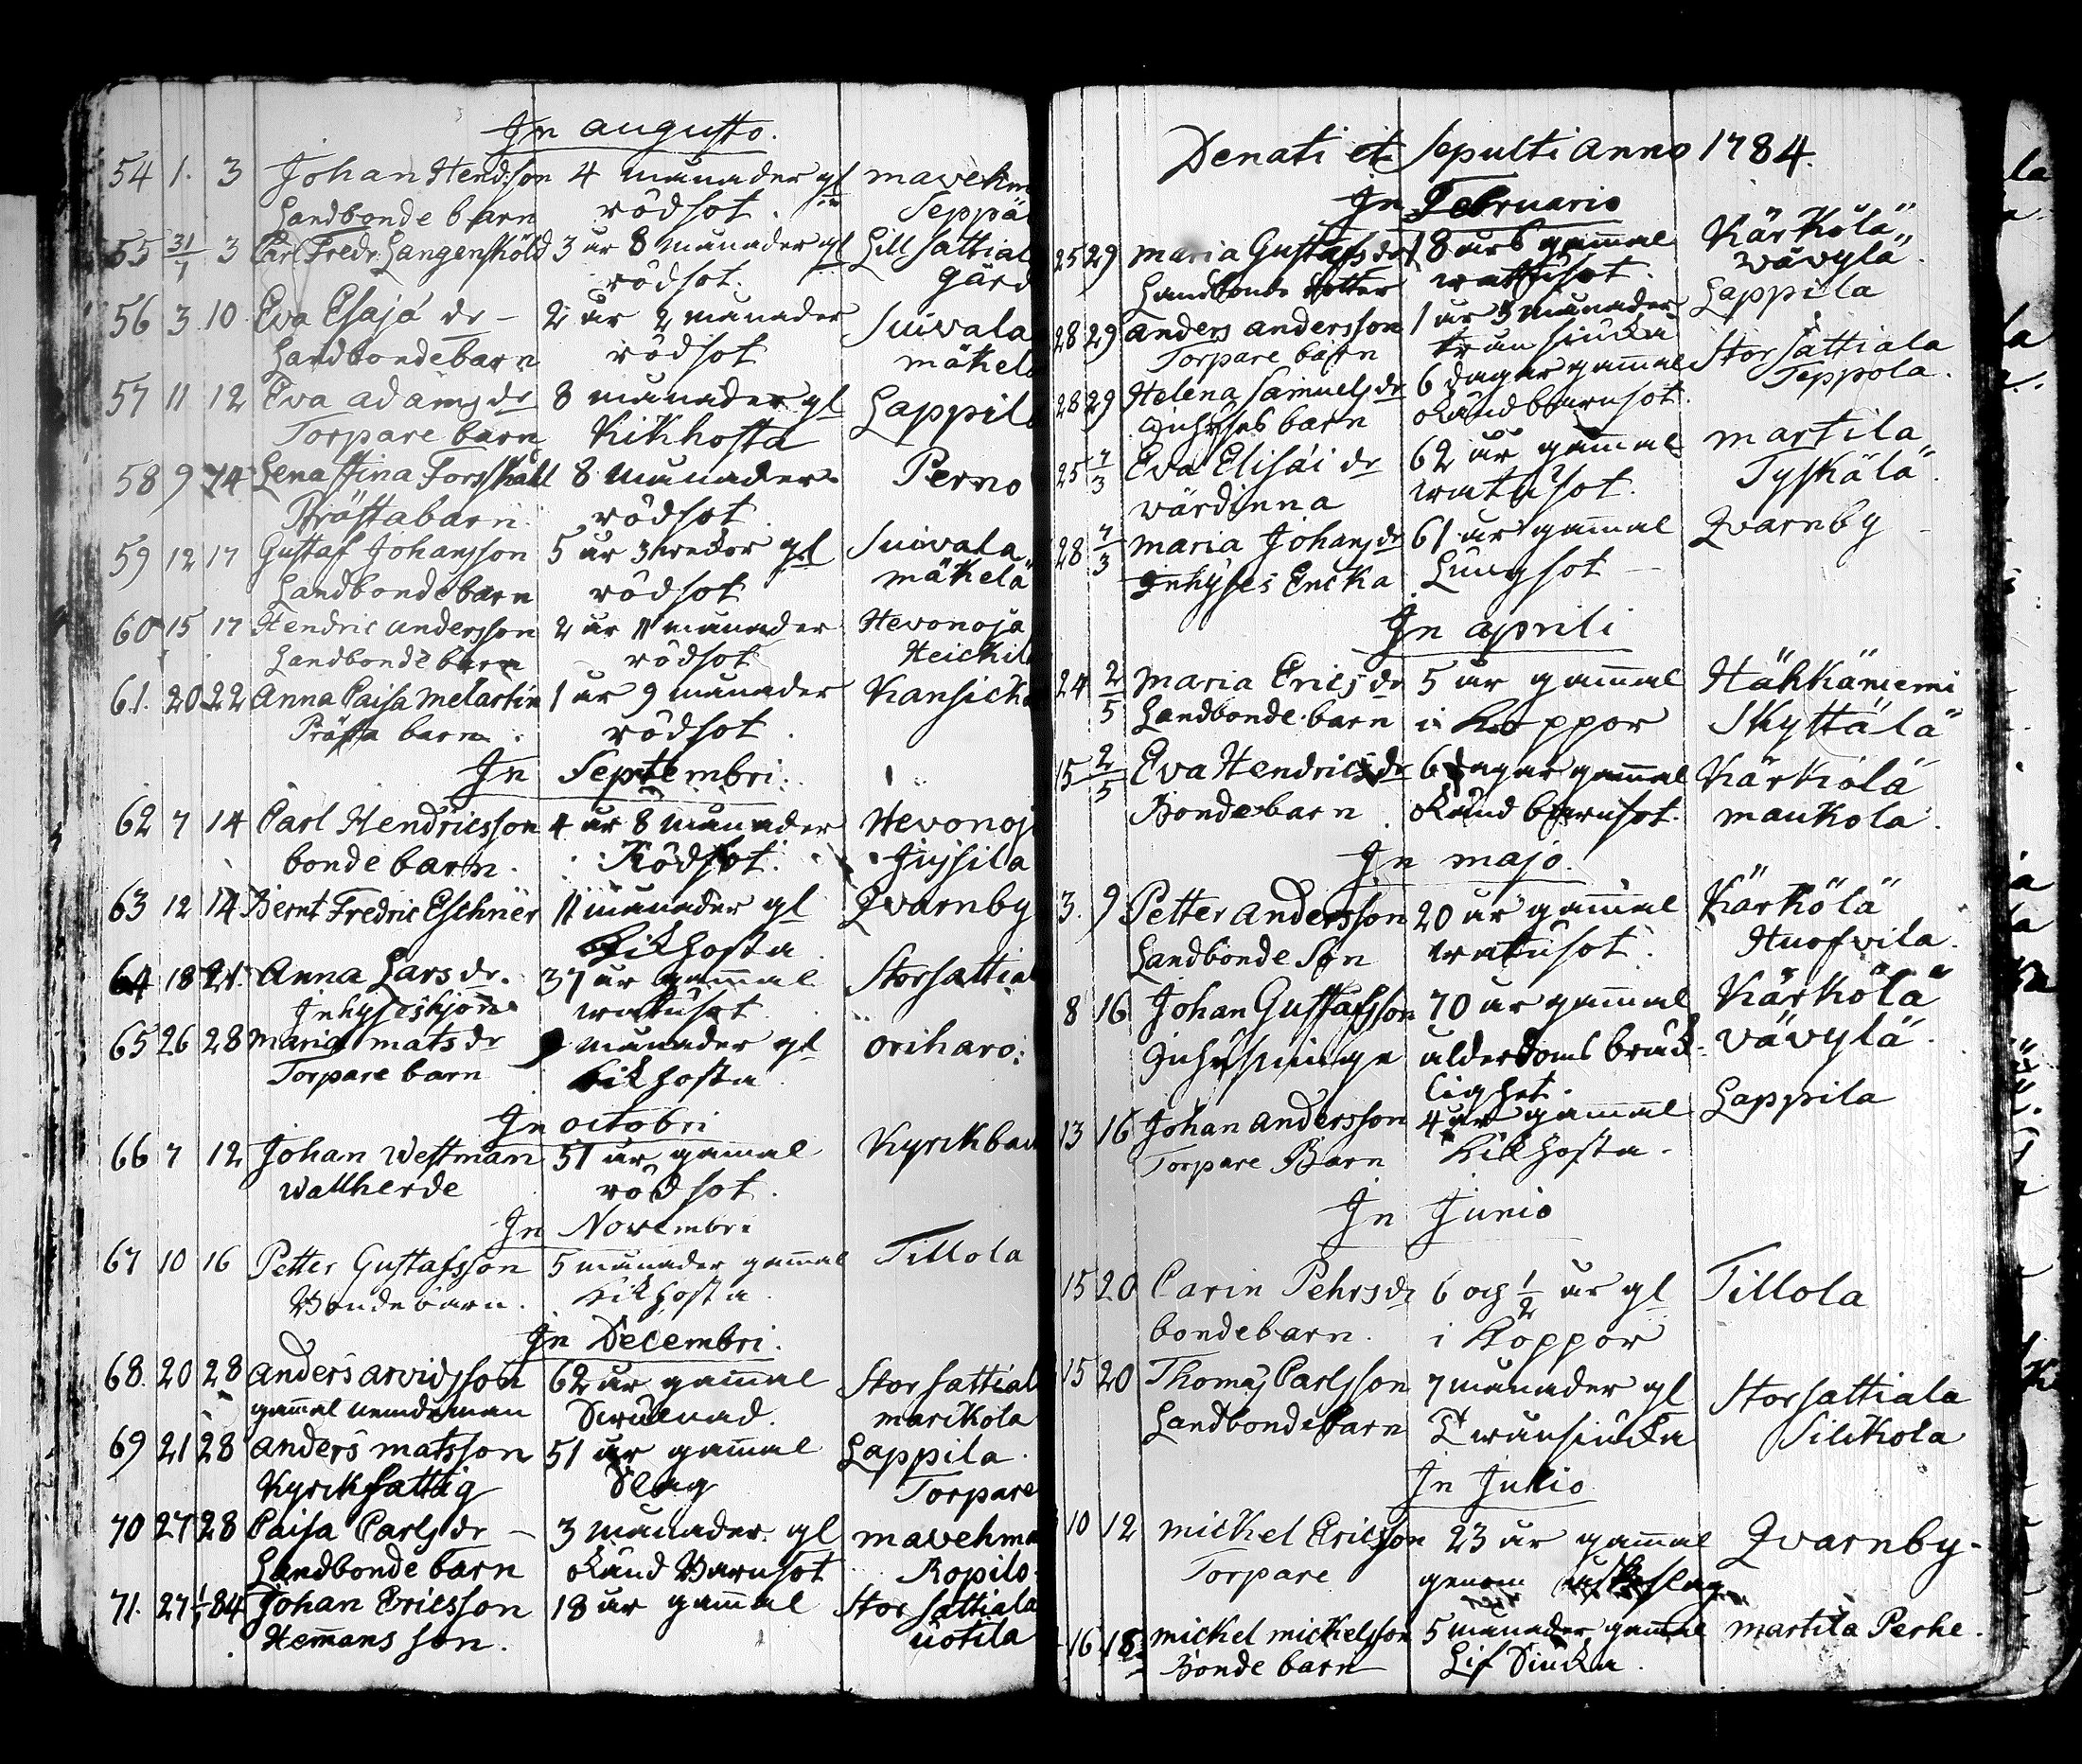 In augusto.
54 1. 3 Johan Hend:son 4 månader gl mavehm
Landbonde barn rödsot. Seppäl
55 31/7 3 Carl Fredr: Langensköld 3 år 8 månader gl Lill Sattial
rödsot. gård
56 3 10 Eva Esajæ dr - 2 år 2 månader Suivala
Landbondebarn rödsot mäkelä
57 11 12 Eva adamsdr 8 månader gl Lappila
Torpare barn Kikhosta
58 9 14 Lena Stina Forsskåhl 8 månader Perno
Prästabarn rödsot.
59 12 17 Gustaf Johansson 5 år 3 wekor gl Suivala
Landbondebarn rödsot mäkelä
60 15 17 Hendric andersson 2 år 11 månader Hevonoja
Landbonde barn rödsot Heickil
61. 20 22 Anna Caisa melartin 1 år 9 månader Kansicka
Prästa barn. rödsot.
In Septembri.
62 7 14 Carl Hendricsson 4 år 8 månader Hevonoj
bonde barn. Rödsot. Jussila
63 12 14 Bernt Fredric Eschner 11 månader gl Qvarnby
kikhosta
64 18 21. Anna Larsdr. 37 år gammal Storsattial
Inhyseshjon watusot.
65 26 28 Maria matsdr 9 månader gl öriharo.
Torpare barn kikhosta
In octobri
66 7 12 Johan Westman 51 år gamal Kyrckbac
Wallherde rödsot.
In Novembri
67 10 16 Petter Gustafsson 5 månader gammal Tillola
Bondebarn. kikhosta
In Decembri.
68. 20 28 anders arvidsson 62 år gammal Stor sattial
gammal nemdeman Drucknad. marckola
69 21 28 anders matsson 51 år gammal Lappila
Kyrckfattig Slag Torpare
70 27 28 Caisa Carlsdr - 3 månader gl mavehma
Landbonde barn okänd Barnsot Ropilo
71. 27 1/1 84 Johan Ericsson 18 år gammal Stor Sattiala
Hemmans son. uotila
Denati et Sepulti anno 1784.
In Februario
25 29 maria Gustafsdotr 18 års gammal Kärkölä
Landbonde dotter wattusot. wävylä
28 29 anders andersson 1 år 3 månader Lappila
Torpare barn tränsiucka
28 29 Helena Samuelsdr 6 dagar gammal Stor Sattiala
Inhyses barn okänd barnsot. Teppola.
25 7/3 Eva Elisæi dr 62 år gammal martila
wärdinna watusot. Tyskälä
28 7/3 maria Johansdr 61 år gammal Qvarnby
Inhyses Encka Lungsot
In aprili
24 2/5 maria Ericsdr 5 år gammal Hähkäniemi
Landbonde barn i koppor Skyttälä
15 2/5 Eva Hendricsdr 6 dagar gammal Kärkölä
Bondebarn. okänd barnsot. maukola.
In majo.
3. 9 Petter andersson 20 år gammal Kärkölä
Landbonde Son watusot. Huofvila.
8 16 Johan Gustafsson 70 år gammal Kärkölä
Inhysinge ålderdoms bräck- vävylä
lighet.
13 16 Johan andersson 4 år gammal Lappila
Torpare Barn kikhosta.
In Junio
15 20 Carin Pehrsdr 6 och 1/2 år gl Tillola
bondebarn. i koppor
15 20 Thomas Carlsson 7 månader gl Storsattiala
Landbondebarn Tränsiucka Silckola
In Julio
10 12 mickel Ericsson 23 år gammal Qvarnby.
Torpare genom åskeslag
16 18 mickel mickelsson 5 månader gammal martila Perhe.
Bonde barn Lif Siucka.